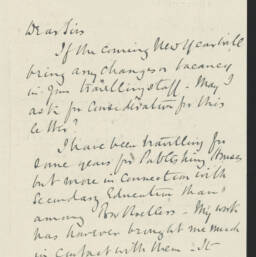 Dear Sirs
If the coming New Year will
bring any changes or vacancy
in your travelling staff – may I
ask for consideration for this
letter?
I have been travelling for
some years for Publishing Houses
but more in connection with
Secondary Education than
among Booksellers – My work
has however brought me much
in contact with them – It